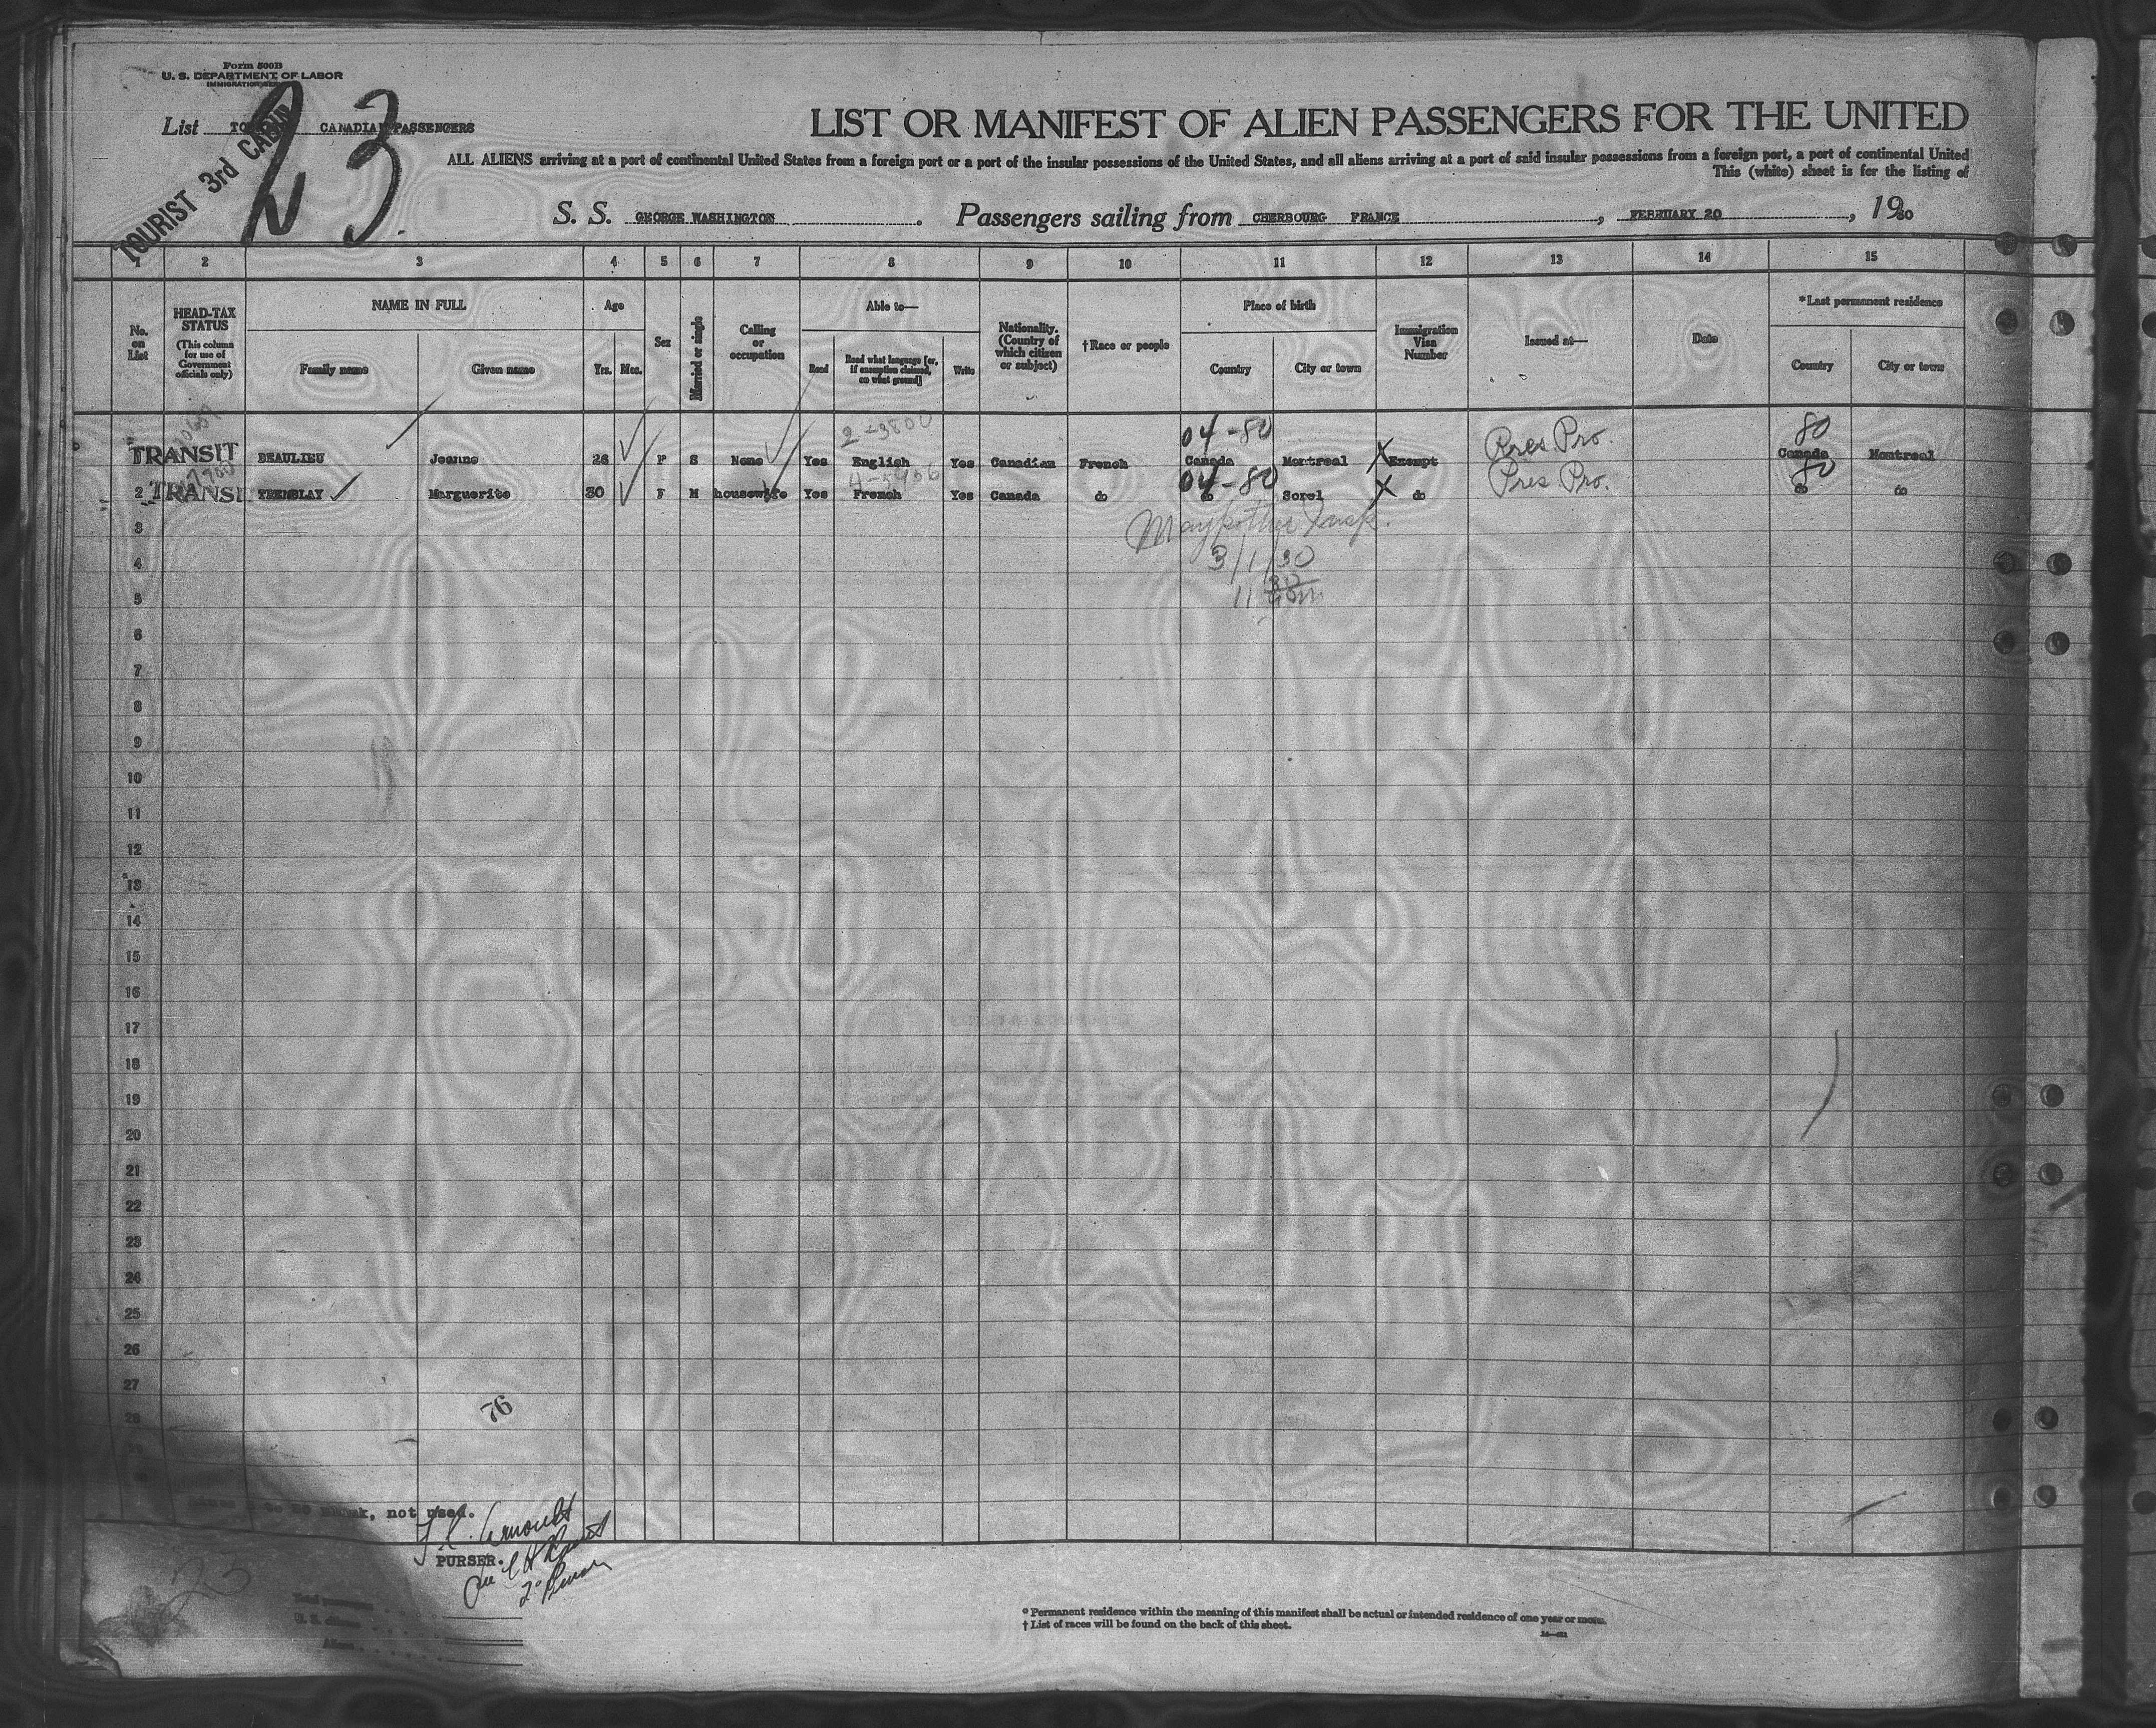 Form 500B
U. S. DEPARTMENT OF LABOR
IMMIGRATION
List CANADIAN PASSENGERS
TOURIST 3rd CABIN
23
LIST OR MANIFEST OF ALIEN PASSENGERS FOR THE UNITED
ALL ALIENS arriving at a port of continental United States from a foreign port or a port of the insular possessions of the United States, and all aliens arriving at a port of said insular possessions from a foreign port, a port of continental United
This (white) sheet is for the listing of
S. S. GEORGE WASHINGTON. Passengers sailing from CHERBOURG FRANCE, FEBRUARY 20, 1930
1 2 3 4 5 6 7 8 9 10 11 12 13 14 15
No. on List
HEAD-TAX STATUS (This column for use of Government officials only)
NAME IN FULL
Family name Given name
Age
Yrs. Mos.
Sex
Married or single
Calling or occupation
Able to—
Read Read what language [or, if exemption claimed, on what ground] Write
Nationality. (Country of which citizen or subject)
†Race or people
Place of birth
Country City or town
Immigration Visa Number
Issued at—
Date
*Last permanent residence
Country City or town
2-3800 04-80 80
TRANSIT BEAULIEU Jeanne 26 F S None Yes English Yes Canadian French Canada Montreal Exempt Pres Pro. Canada Montreal
04-80 80
2 TRANSIT TREMBLAY Marguerite 30 F M housewife Yes French Yes Canada do do Sorel do Pres Pro. do do
3
3/1/30
4
5
6
7
8
9
10
11
12
13
14
15
16
17
18
19
20
21
22
23
24
25
26
27
28
76
not used.
PURSER.
23
Total passengers
U. S. citizens
Aliens
* Permanent residence within the meaning of this manifest shall be actual or intended residence of one year or more.
† List of races will be found on the back of this sheet.